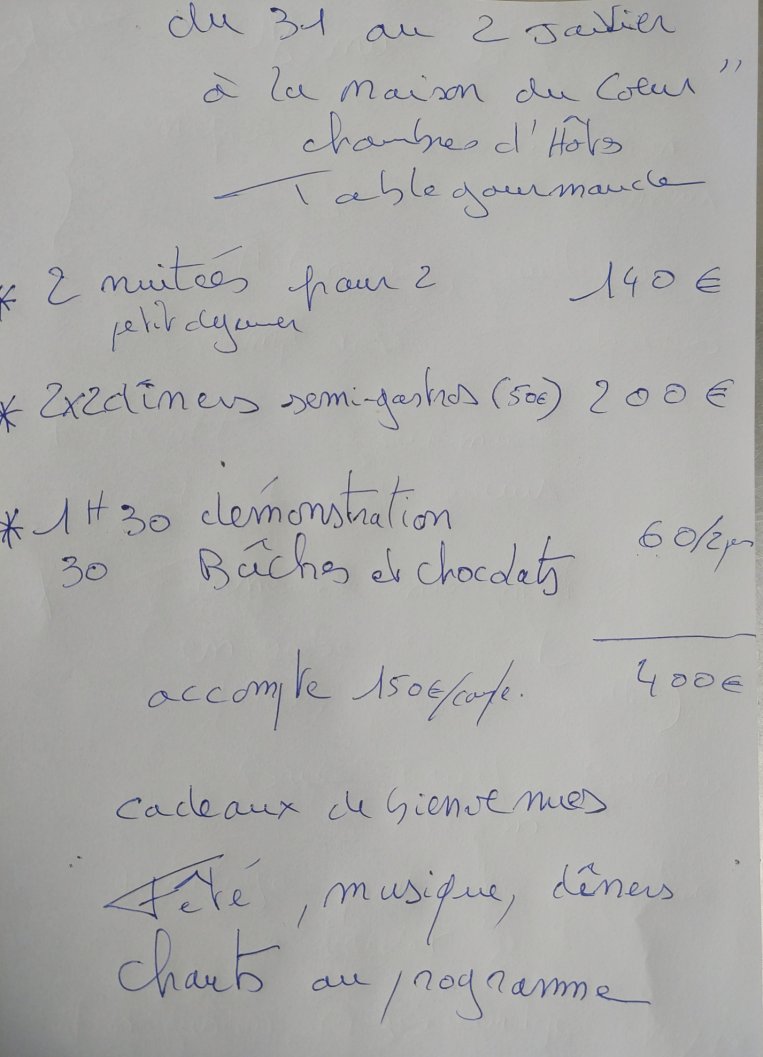 du 31 au 2 Janvier
à la maison du Coeur "
chambres d'Hôtes
Table gourmande
* 2 nuitées pour 2 140 €
petit dejeuner
* 2x2 dîners semi-gastros (50€) 200 €
* 1H30 démonstration
30 Bûches et chocolats 60/2per
accompte 150€/couple. 400€
cadeaux de bienvenues
Fêté, musique, dîners
chants au programme